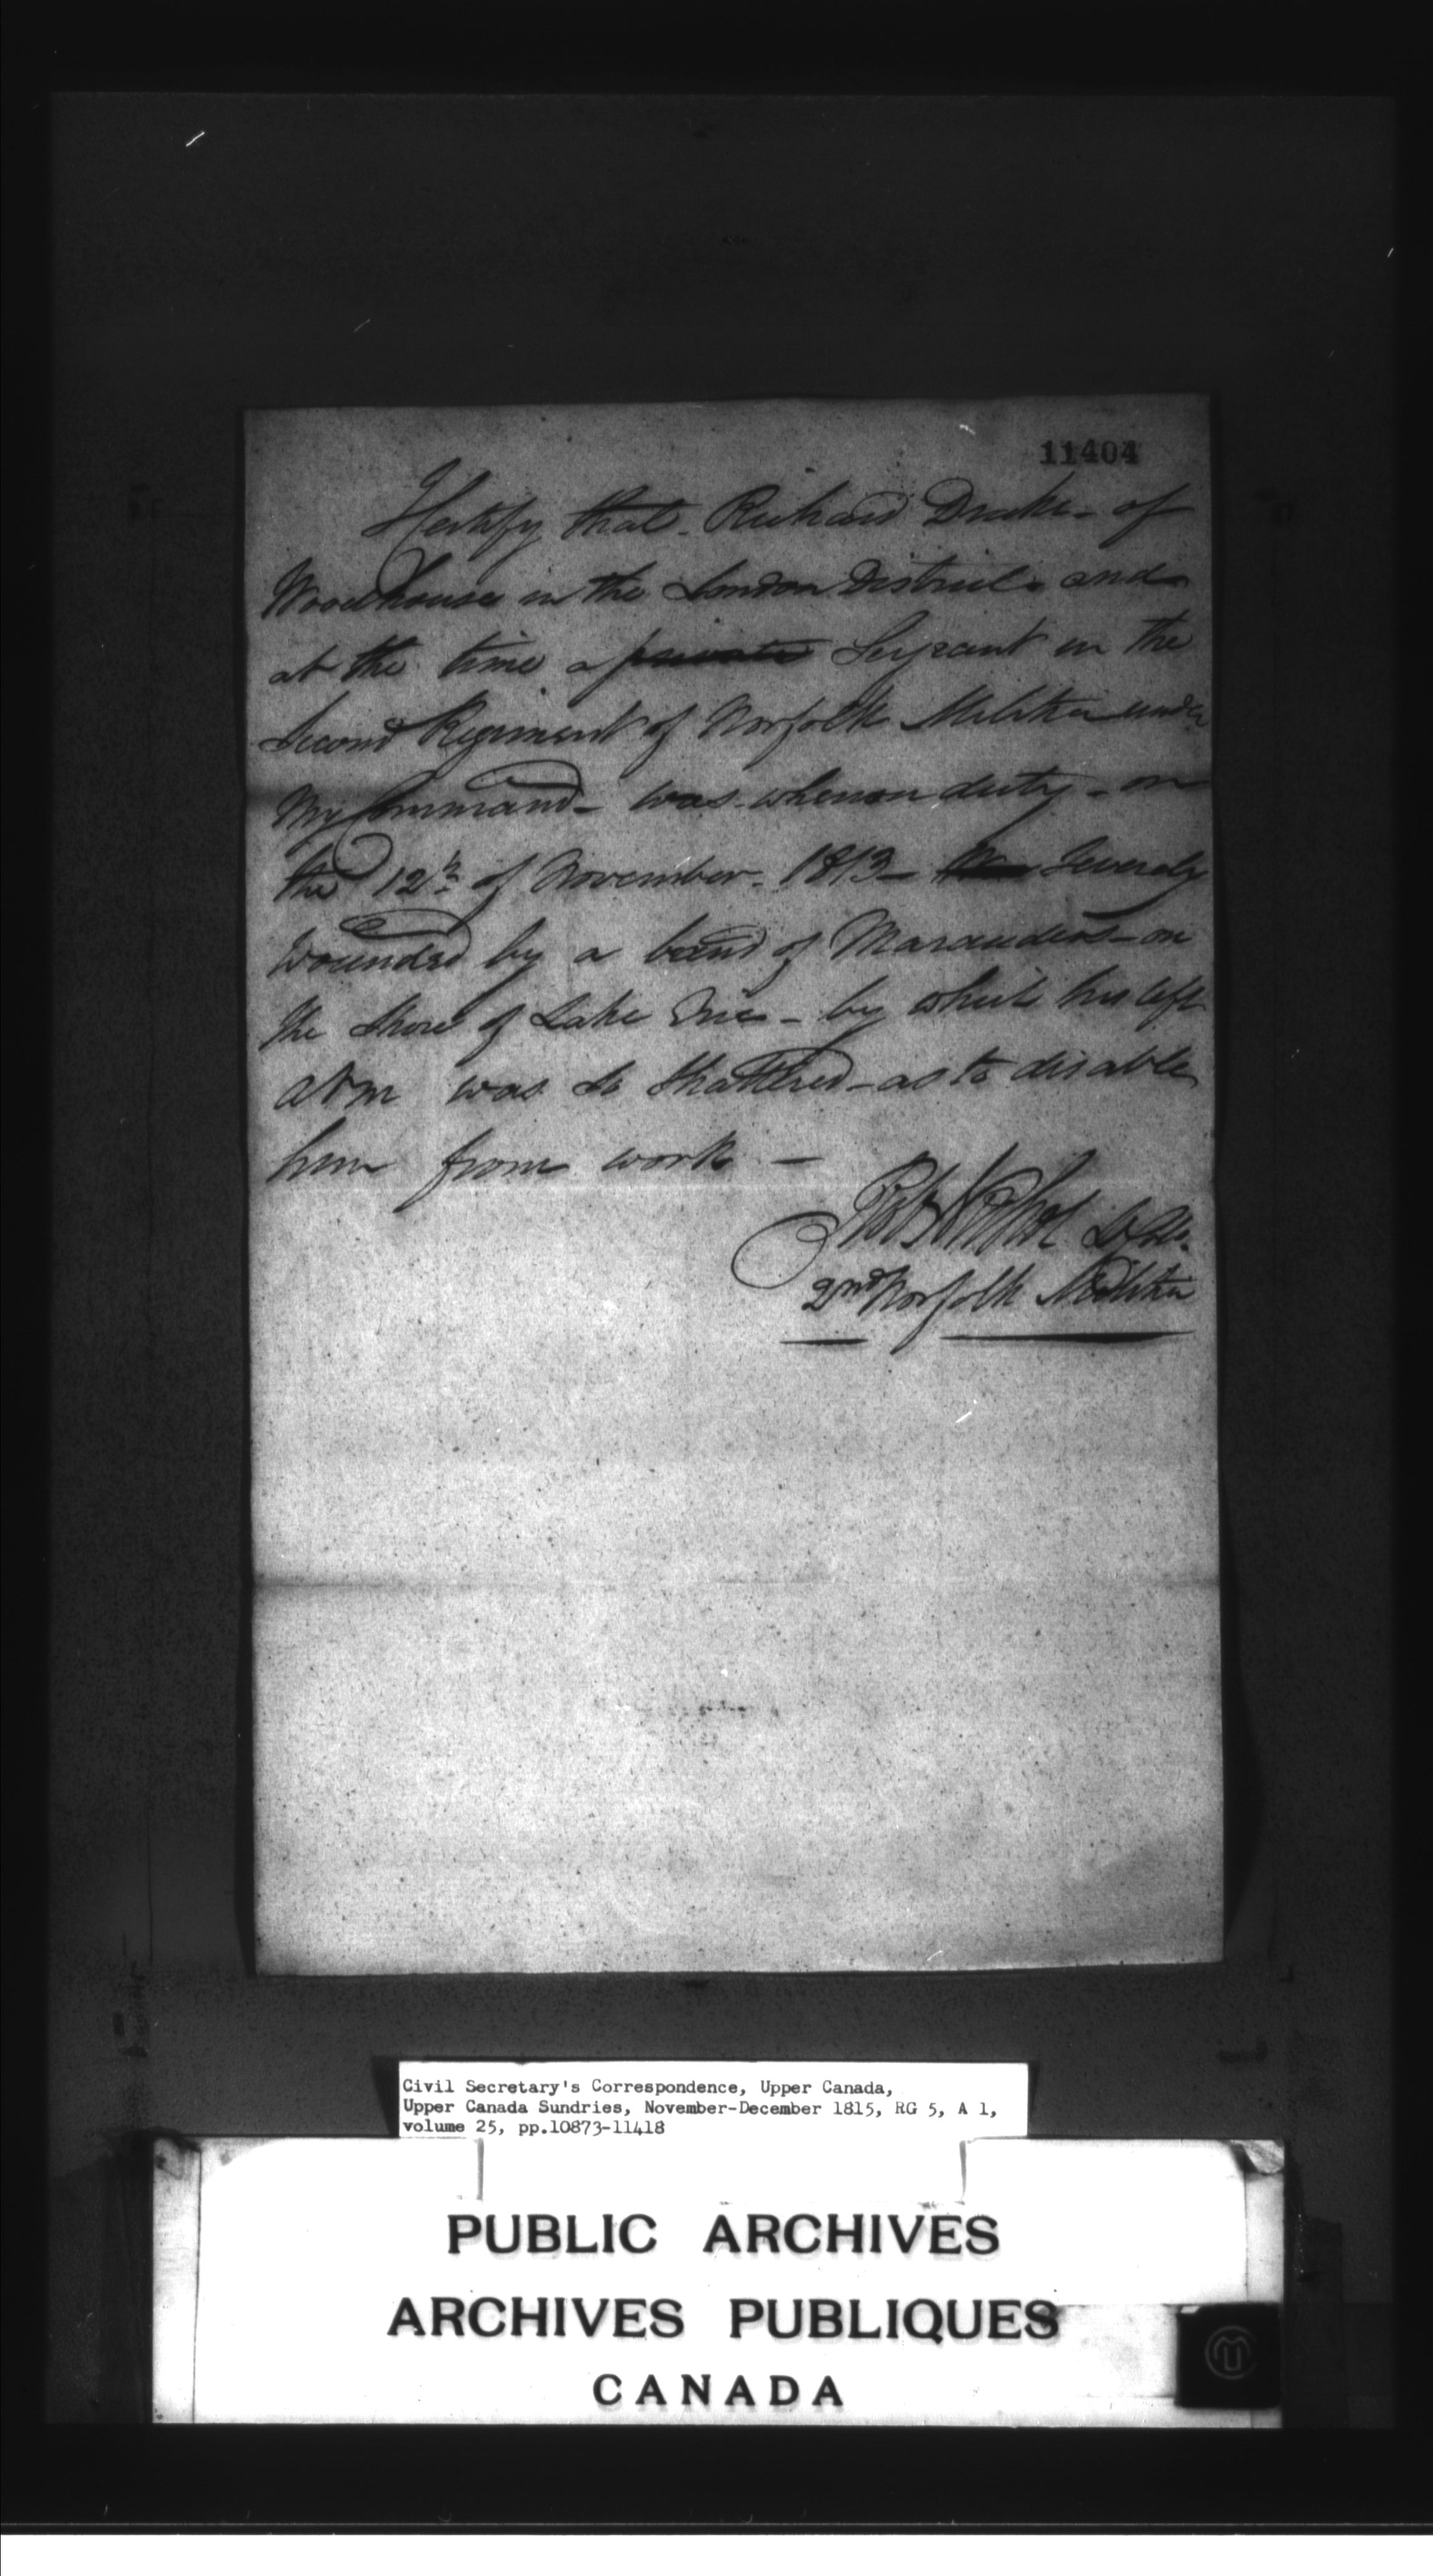 11404
I Certify that Richard Drake - of
Woodhouse in the London District and
at the time a private Serjeant in the
Second Regiment of Norfolk Militia under
My Command - was when on duty - on
the 12th of November 1813 - Severely
wounded by a band of Marauders - on
the Shore of Lake Erie - by which his left
arm was so shattered - as to disable
him from work -
Robt Nichol
2nd Norfolk Militia
Civil Secretary's Correspondence, Upper Canada,
Upper Canada Sundries, November-December 1815, RG 5, A 1,
volume 25, pp.10873-11418
PUBLIC ARCHIVES
ARCHIVES PUBLIQUES
CANADA